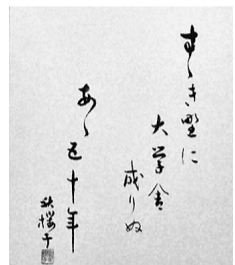 すゝき野に
大学舎
成りぬ
あゝ五十年
秋櫻子